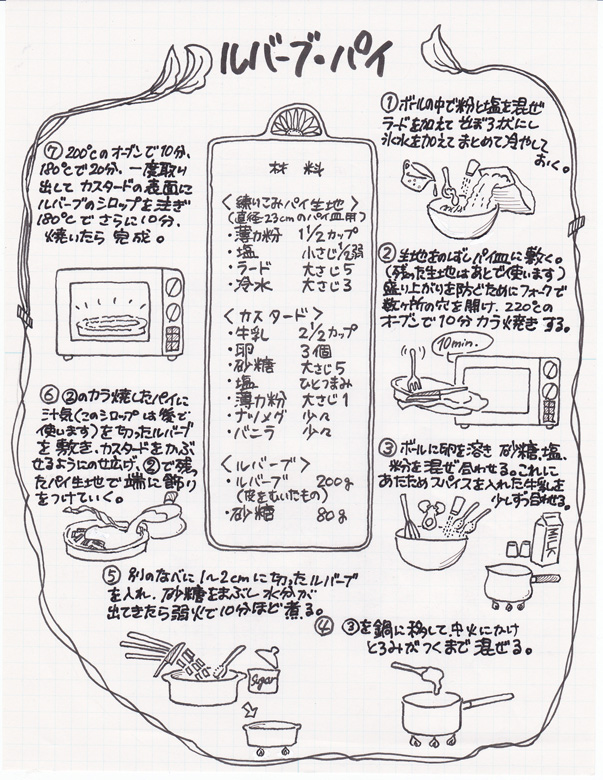 ルバーブ・パイ
材料
〈練りこみパイ生地〉
(直径23cmのパイ皿用)
・薄力粉 1 1/2カップ
・塩 小さじ1/2弱
・ラード 大さじ5
・冷水 大さじ3
〈カスタード〉
・牛乳 2 1/2カップ
・卵 3個
・砂糖 大さじ5
・塩 ひとつまみ
・薄力粉 大さじ1
・ナツメグ 少々
・バニラ 少々
〈ルバーブ〉
・ルバーブ 200g
(皮をむいたもの)
・砂糖 80g
①ボールの中で粉と塩を混ぜ
ラードを加えて そぼろ状にし
氷水を加えて まとめて冷やして
おく。
②生地をのばしパイ皿に敷く。
(残った生地はあとで使います)
盛り上がりを防ぐためにフォークで
数ヶ所の穴を開け、220℃の
オーブンで10分 カラ焼きする。
10min.
③ボールに卵を溶き 砂糖、塩、
粉を混ぜ合わせる。これに
あたためスパイスを入れた牛乳を
少しずつ合わせる。
MILK
④ ③を鍋に移して、中火にかけ
とろみがつくまで 混ぜる。
⑤ 別のなべに1~2cmに切ったルバーブ
を入れ、砂糖をまぶし 水分が
出てきたら弱火で10分ほど煮る。
Sugar
⑥ ②のカラ焼したパイに
汁気(このシロップは後で
使います)を切ったルバーブ
を敷き、カスタードをかぶ
せるようにのせ広げ、②で残っ
たパイ生地で端に飾り
をつけていく。
⑦ 200℃のオーブンで10分、
180℃で20分、一度取り
出してカスタードの表面に
ルバーブのシロップを注ぎ
180℃でさらに10分、
焼いたら 完成。